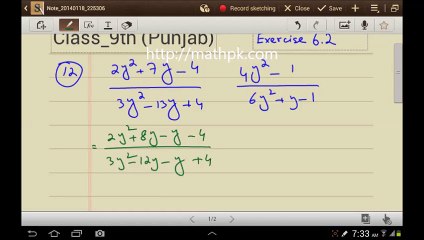 Note_20140118_228306
Record sketching
Class_9th (Punjab)
Exercise 6.2
http://mathpk.com
(12) 2y²+7y-4 / 3y²-13y+4 4y²-1 / 6y²+y-1
= 2y²+8y-y-4 / 3y²-12y-y+4
1/2
7:33 AM